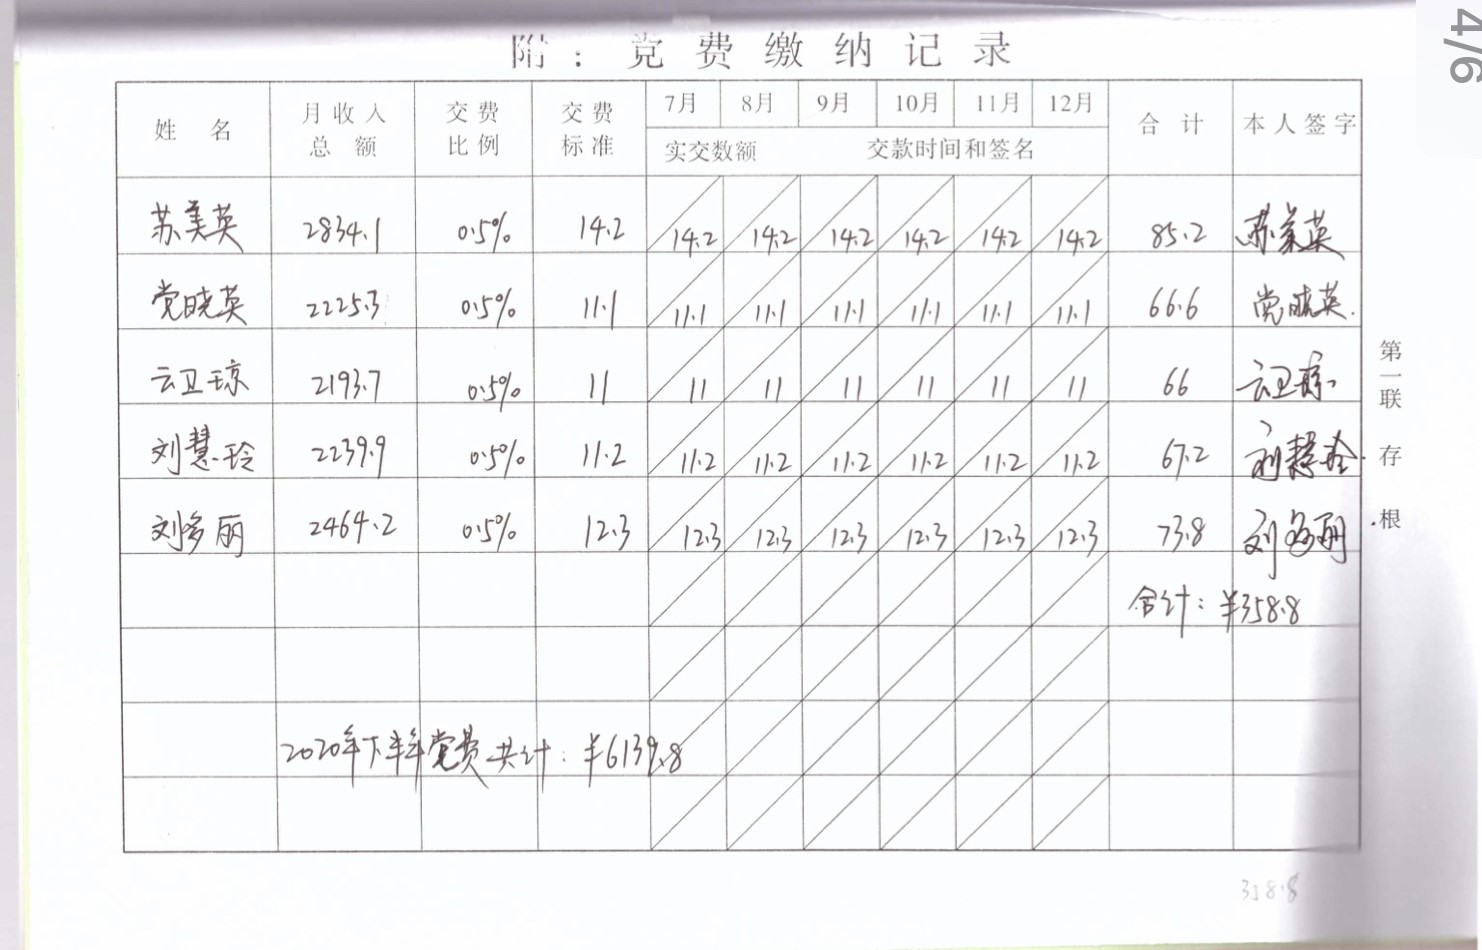 4/6
附：党费缴纳记录
姓名 月收入总额 交费比例 交费标准 7月 8月 9月 10月 11月 12月 合计 本人签字
实交数额 交款时间和签名
苏美英 2834.1 0.5% 14.2 14.2 14.2 14.2 14.2 14.2 14.2 85.2 苏美英
党晓英 2225.3 0.5% 11.1 11.1 11.1 11.1 11.1 11.1 11.1 66.6 党晓英
云卫琼 2193.7 0.5% 11 11 11 11 11 11 11 66 云卫琼
刘慧玲 2239.9 0.5% 11.2 11.2 11.2 11.2 11.2 11.2 11.2 67.2 刘慧玲
刘多丽 2464.2 0.5% 12.3 12.3 12.3 12.3 12.3 12.3 12.3 73.8 刘多丽
合计：¥358.8
2020年下半年党费共计：¥6139.8
第一联存根
358.8